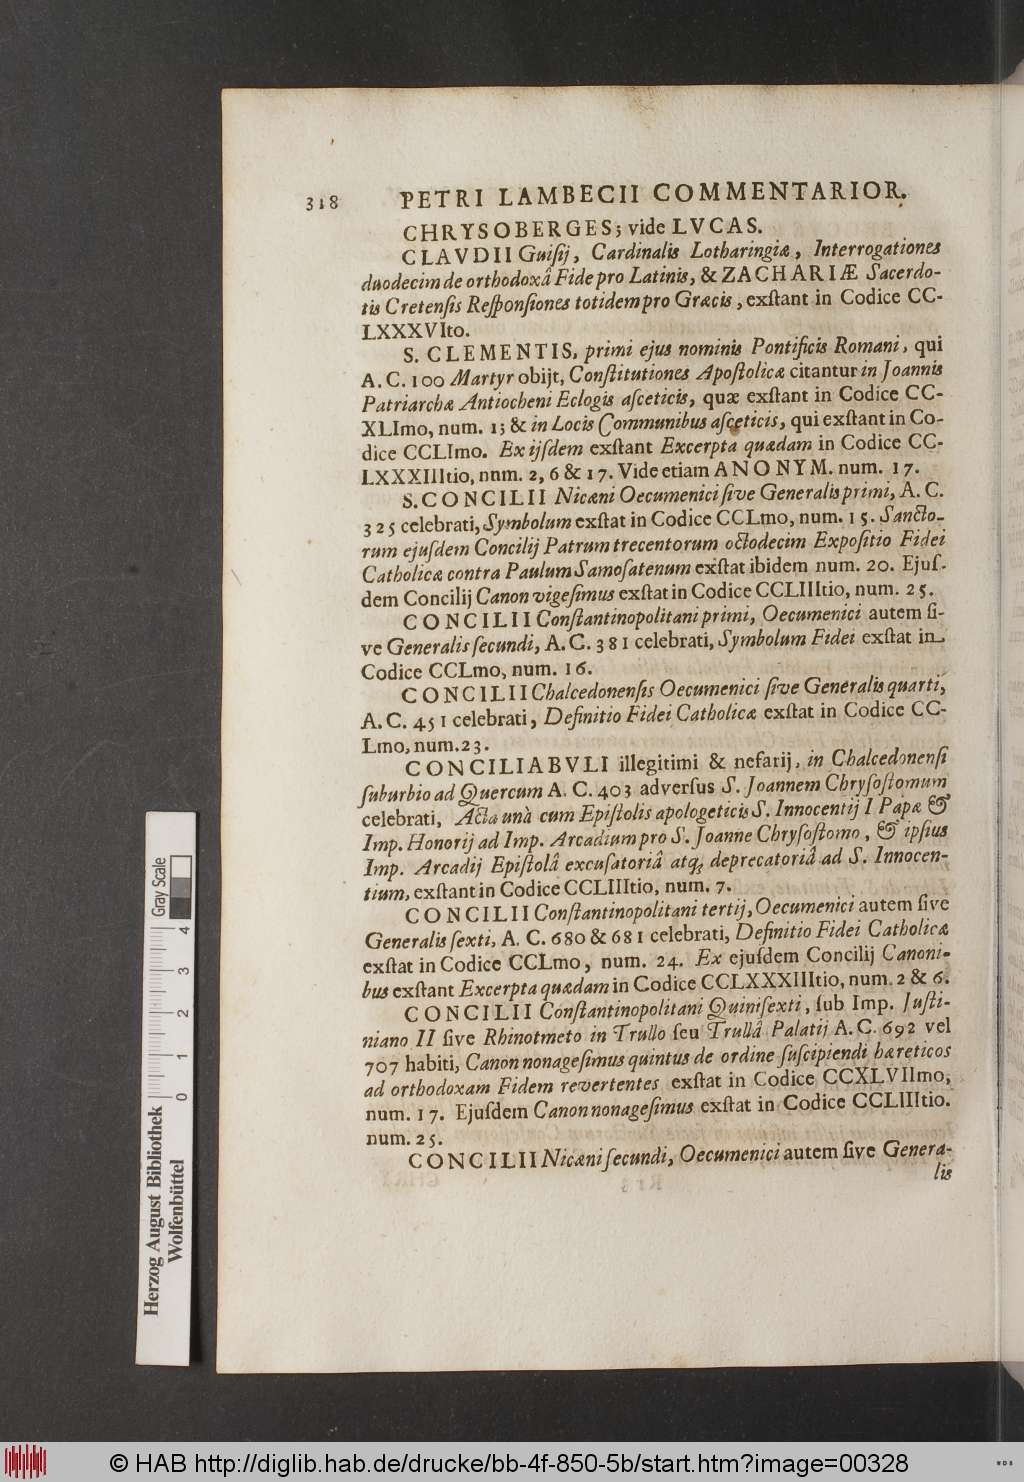 318 PETRI LAMBECII COMMENTARIOR.
CHRYSOBERGES; vide LVCAS.
CLAVDII Guiſij, Cardinalis Lotharingiæ, Interrogationes
duodecim de orthodoxâ Fide pro Latinis, & ZACHARIÆ Sacerdo-
tis Cretenſis Reſponſiones totidem pro Græcis, exſtant in Codice CC-
LXXXVIto.
S. CLEMENTIS, primi ejus nominis Pontificis Romani, qui
A. C. 100 Martyr obijt, Conſtitutiones Apoſtolicæ citantur in Joannis
Patriarchæ Antiocheni Eclogis aſceticis, quæ exſtant in Codice CC-
XLImo, num. 13 & in Locis Communibus aſceticis, qui exſtant in Co-
dice CCLImo. Ex ijſdem exſtant Excerpta quædam in Codice CC-
LXXXIIItio, nnm. 2, 6 & 17. Vide etiam ANONYM. num. 17.
S. CONCILII Nicæni Oecumenici ſive Generalis primi, A. C.
325 celebrati, Symbolum exſtat in Codice CCLmo, num. 15. Sancto-
rum ejuſdem Concilij Patrum trecentorum octodecim Expoſitio Fidei
Catholicæ contra Paulum Samoſatenum exiſtat ibidem num. 20. Ejuſ-
dem Concilij Canon vigeſimus exſtat in Codice CCLIIItio, num. 25.
CONCILII Conſtantinopolitani primi, Oecumenici autem ſi-
ve Generalis ſecundi, A. C. 381 celebrati, Symbolum Fidei exſtat in
Codice CCLmo, num. 16.
CONCILII Chalcedonenſis Oecumenici ſive Generalis quarti,
A. C. 451 celebrati, Definitio Fidei Catholicæ exſtat in Codice CC-
Lmo, num. 23.
CONCILIABVLI illegitimi & nefarij, in Chalcedonenſi
ſuburbio ad Quercum A. C. 403 adverſus S. Joannem Chryſoſtomum
celebrati, Acta unà cum Epiſtolis apologeticis S. Innocentij I Papæ &
Imp. Honorij ad Imp. Arcadium pro S. Joanne Chryſoſtomo, & ipſius
Imp. Arcadij Epiſtolâ excuſatoriâ atq; deprecatoriâ ad S. Innocen-
tium, exſtant in Codice CCLIIItio, num. 7.
CONCILII Conſtantinopolitani tertij, Oecumenici autem ſive
Generalis ſexti, A. C. 680 & 681 celebrati, Definitio Fidei Catholicæ
exſtat in Codice CCLmo, num. 24. Ex ejuſdem Concilij Canoni-
bus exſtant Excerpta quædam in Codice CCLXXXIIItio, num. 2 & 6.
CONCILII Conſtantinopolitani Quiniſexti, ſub Imp. Juſti-
niano II ſive Rhinotmeto in Trullo ſeu Trullâ Palatij A. C. 692 vel
707 habiti, Canon nonageſimus quintus de ordine ſuſcipiendi hæreticos
ad orthodoxam Fidem revertentes exſtat in Codice CCXLVIImo,
num. 17. Ejuſdem Canon nonageſimus exſtat in Codice CCLIIItio.
num. 25.
CONCILII Nicæni ſecundi, Oecumenici autem ſive Genera-
lis
Herzog August Bibliothek
Wolfenbüttel
0 1 2 3 4
Gray Scale
© HAB http://diglib.hab.de/drucke/bb-4f-850-5b/start.htm?image=00328